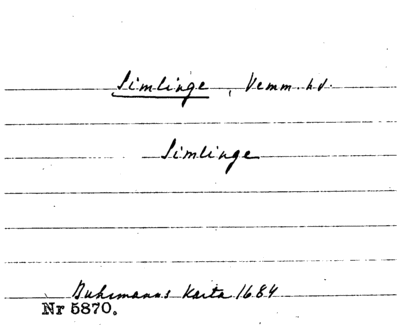 Simlinge, Vemm. hd.
Simlinge
Buhrmanns Karta 1684
Nr 5870.